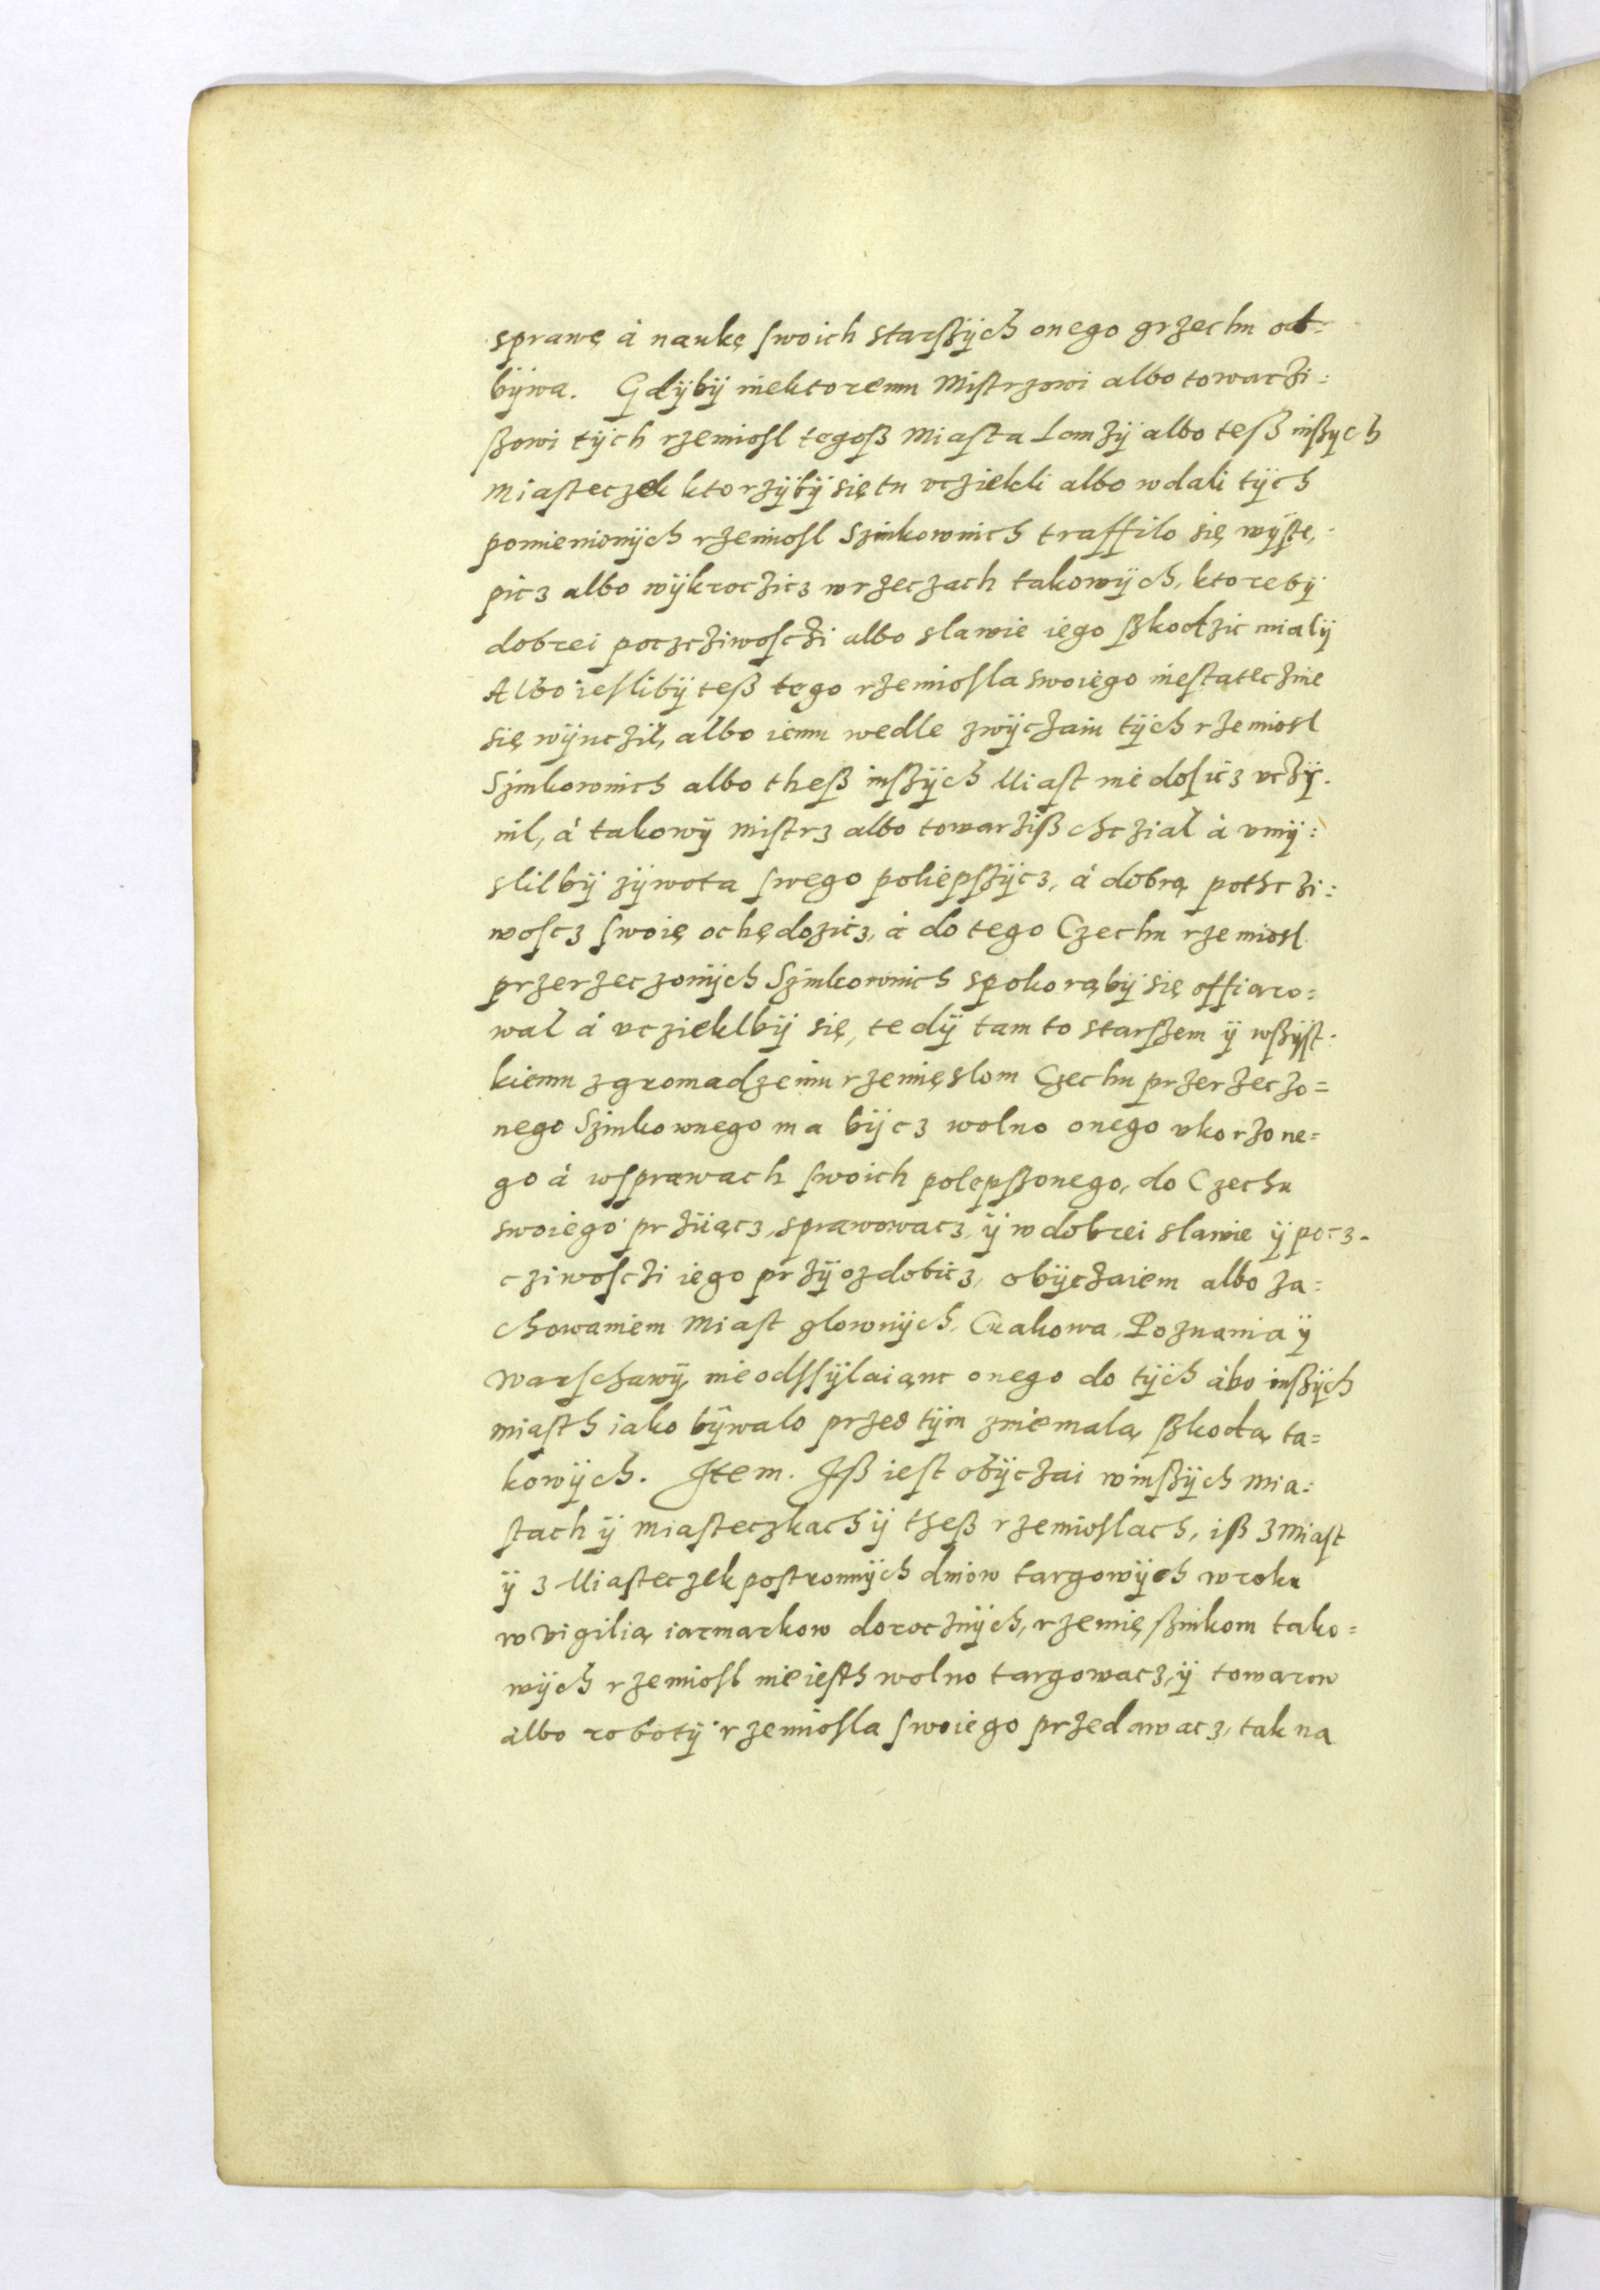 sprawę á naukę ſwoich starßÿch onego grzechu od=
bÿwa. Gdÿbÿ niektoremu Mistrzowi albo towarzi=
ßowi tÿch rzemiosl tegoß Miaſta Lomzÿ albo teß inßych
Miaſteczek ktorzÿbÿ się tu vcziekli albo wdali tÿch
pomienionÿch rzemiosl Szinkownich traffilo się wÿſtę,=
picz albo wÿkroczicz w rzeczach takowÿch, ktorebÿ
dobrei poczcziwoſczi albo slawie iego ßkodzic mialÿ
Albo ieslibÿ teß tego rzemiosla swoiego nieſtatecznie
się wÿuczil, albo iemu wedle zwÿczaiu tÿch rzemiosl
Szinkownich albo theß inßÿch Miaſt nie doſicz vczÿ=
nil, á takowÿ Miſtrz albo towarziß chczial á vmÿ=
slilbÿ zÿwota ſwego poliepßÿcz, á dobrą pothczi=
woscz ſwoię ochędozicz, á do tego Czechu rzemiosl
przerzeczonÿch Szinkownich s pokorąbÿ się offiaro=
wal á vczieklbÿ się, tedÿ tam to starßem ÿ wßÿſt=
kiemu zgromadzeniu rzemięslom Czechu przerzeczo=
nego Szinkownego ma bÿcz wolno onego vkorzone=
go á w sprawach ſwoich polepßonego, do Czechu
swoiego prziiącz, sprawowacz, ÿ w dobrei slawie ÿ pocz=
cziwoſczi iego przÿozdobicz, obÿczaiem albo za=
chowaniem Miaſt glownÿch, Crakowa, Poznania ÿ
Warſchawÿ, nie odſſÿlaiąnc onego do tÿch ábo inßÿch
miaſth iako bÿwalo przed tÿm z niemalą ßkodą ta=
kowÿch. Item. Iß ieſt obÿczai w inßÿch Mia=
ſtach ÿ Miaſteczkach ÿ theß rzemioslach, iß z Miaſt
ÿ z Miaſteczek poſtronnÿch dniow targowÿch w roku
w vigilią iarmarkow dorocznÿch, rzemięßnikom tako=
wÿch rzemiosl nie ieſth wolno targowacz, ÿ towarow
albo robotÿ rzemiosla ſwoiego przedawacz, tak na